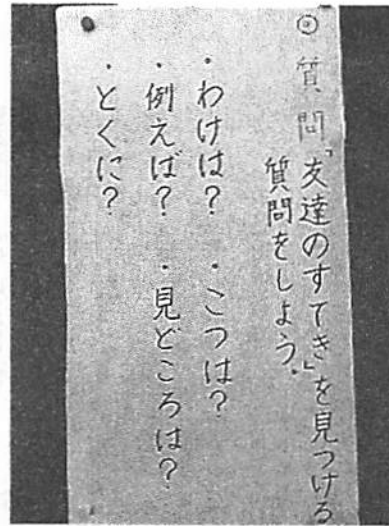 ◎質問「友達のすてき」を見つける
質問をしよう。
・わけは？　・こつは？
・例えば？　・見どころは？
・とくに？